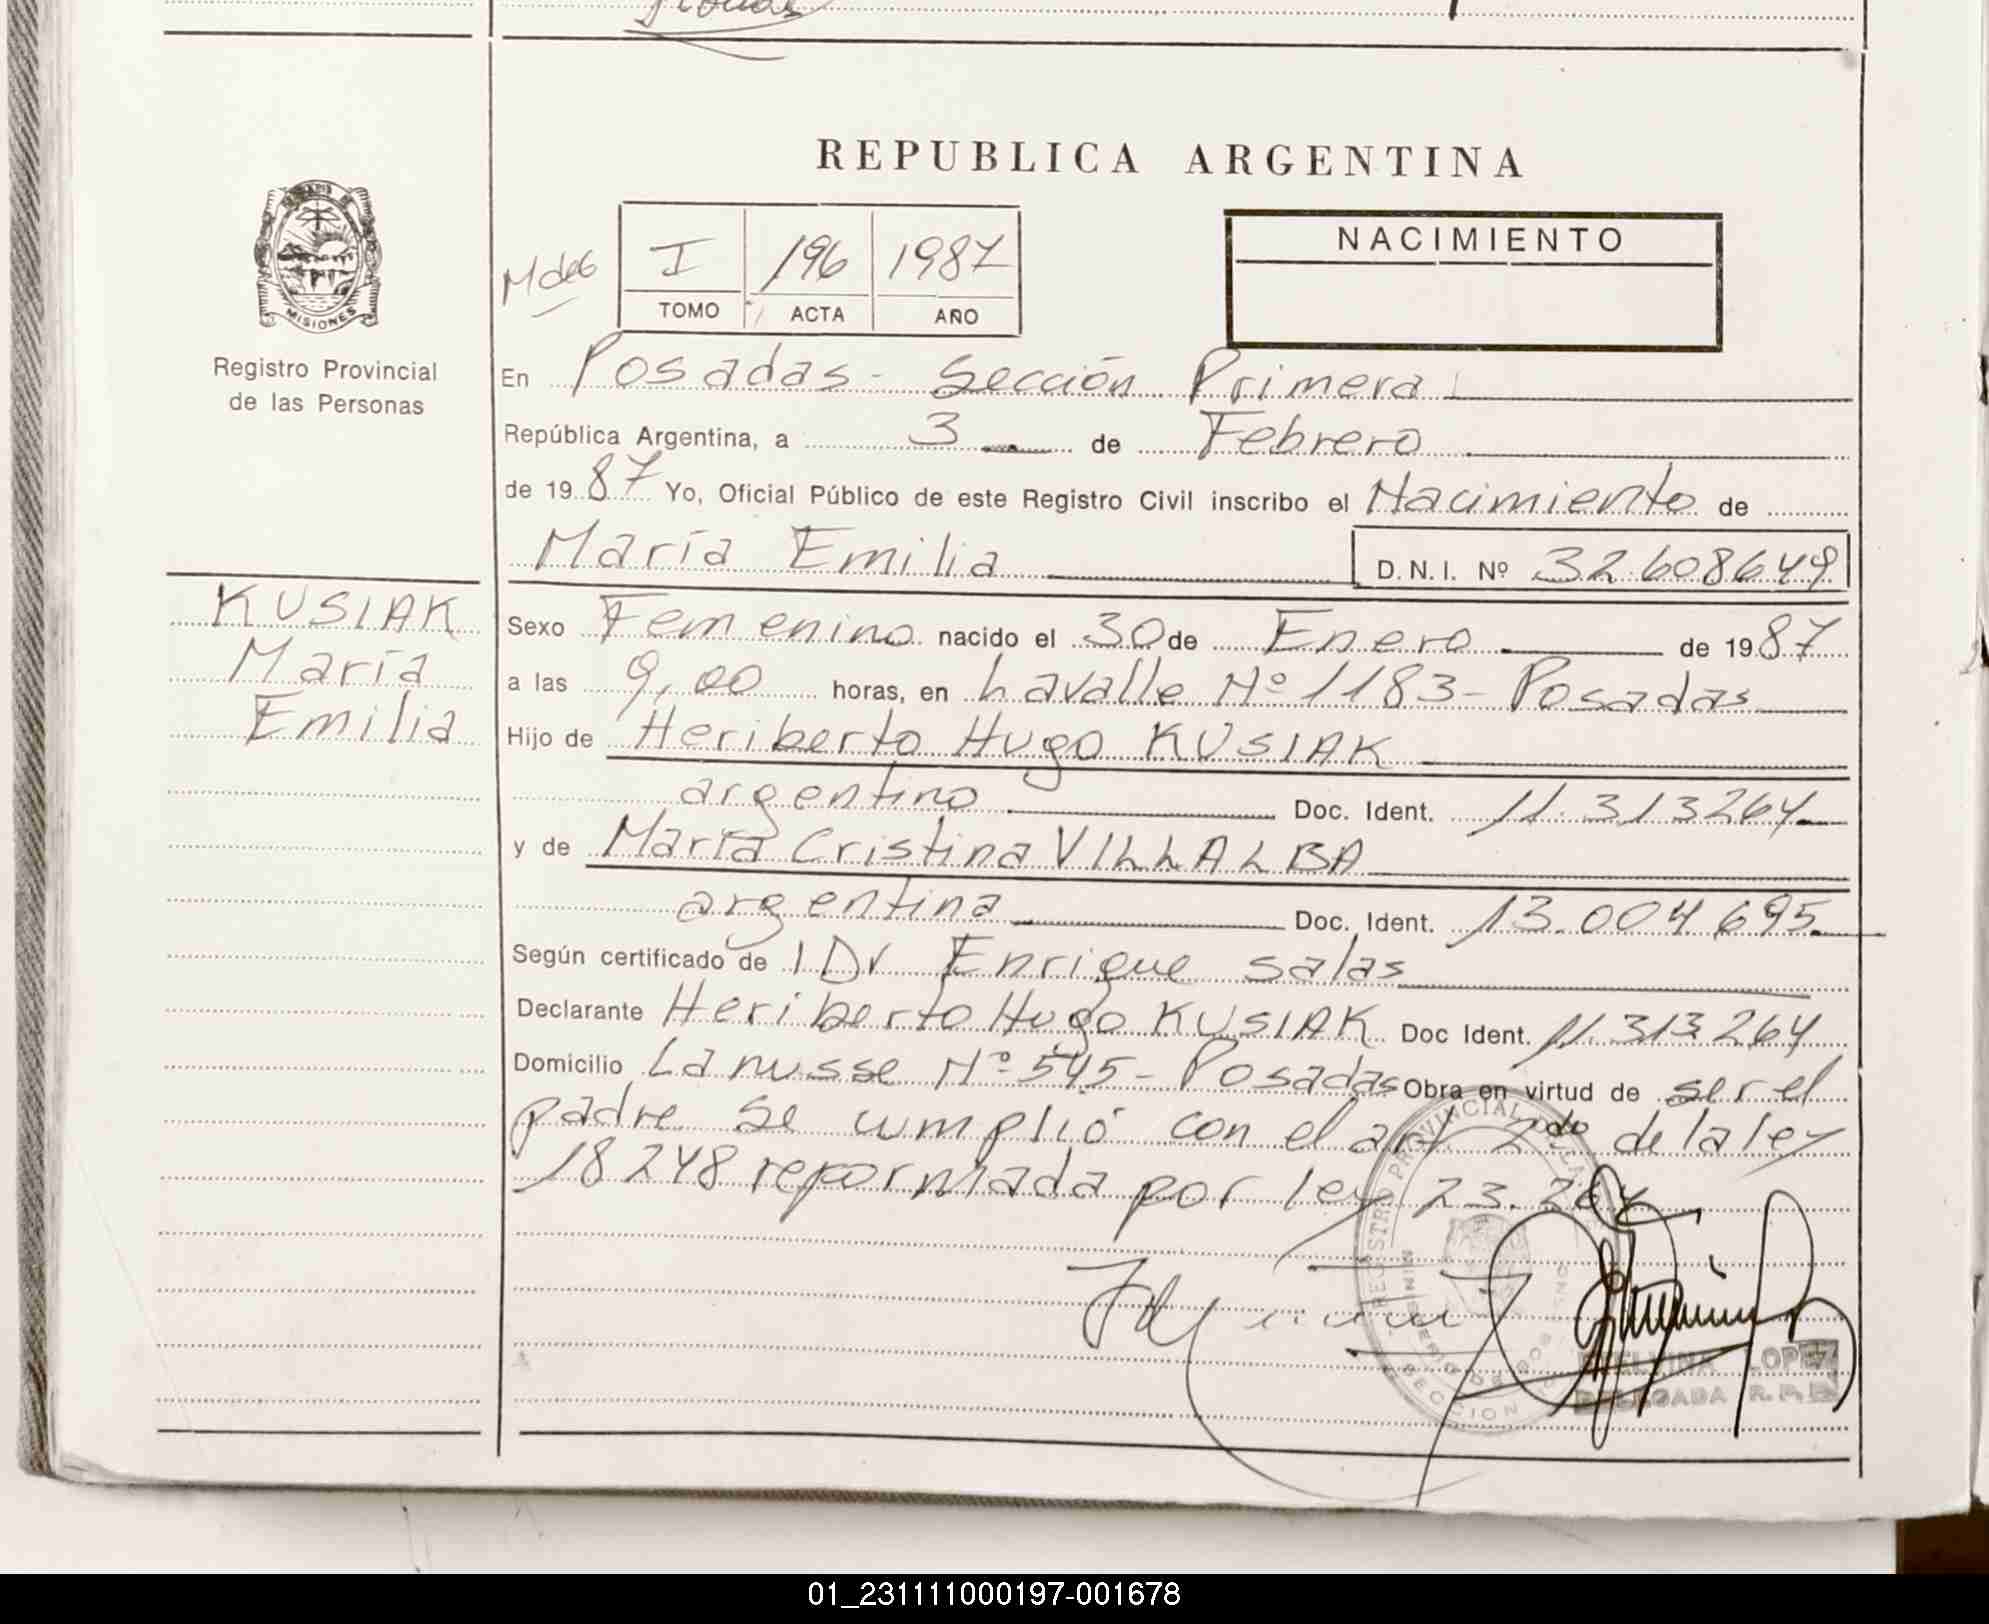 REPUBLICA ARGENTINA
MISIONES
Registro Provincial
de las Personas
I 196 1987
TOMO ACTA AÑO
NACIMIENTO
En Posadas - Sección Primera
República Argentina, a 3 de Febrero
de 1987 Yo, Oficial Público de este Registro Civil inscribo el Nacimiento de
María Emilia D.N.I. Nº 32.608649
KUSIAK
María
Emilia
Sexo Femenino nacido el 30 de Enero de 1987
a las 9,00 horas, en Lavalle Nº 1183 - Posadas
Hijo de Heriberto Hugo KUSIAK
argentino Doc. Ident. 11.313264
y de María Cristina VILLALBA
argentina Doc. Ident. 13.004695
Según certificado de Dr Enrique Salas
Declarante Heriberto Hugo KUSIAK Doc Ident. 11.313264
Domicilio Lanusse Nº 545 - Posadas Obra en virtud de ser el
padre se cumplió con el art 2do de la ley
18248 reformada por ley 23.264
LOPEZ
DELEGADA R. P.
01_231111000197-001678